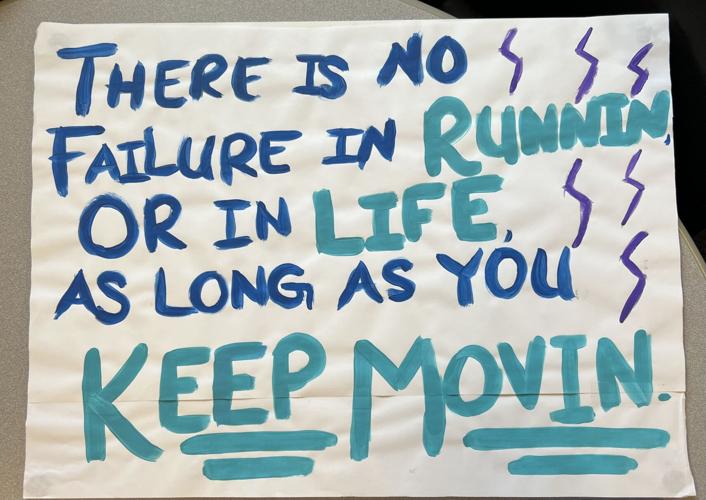 THERE IS NO
FAILURE IN RUNNIN,
OR IN LIFE,
AS LONG AS YOU
KEEP MOVIN.